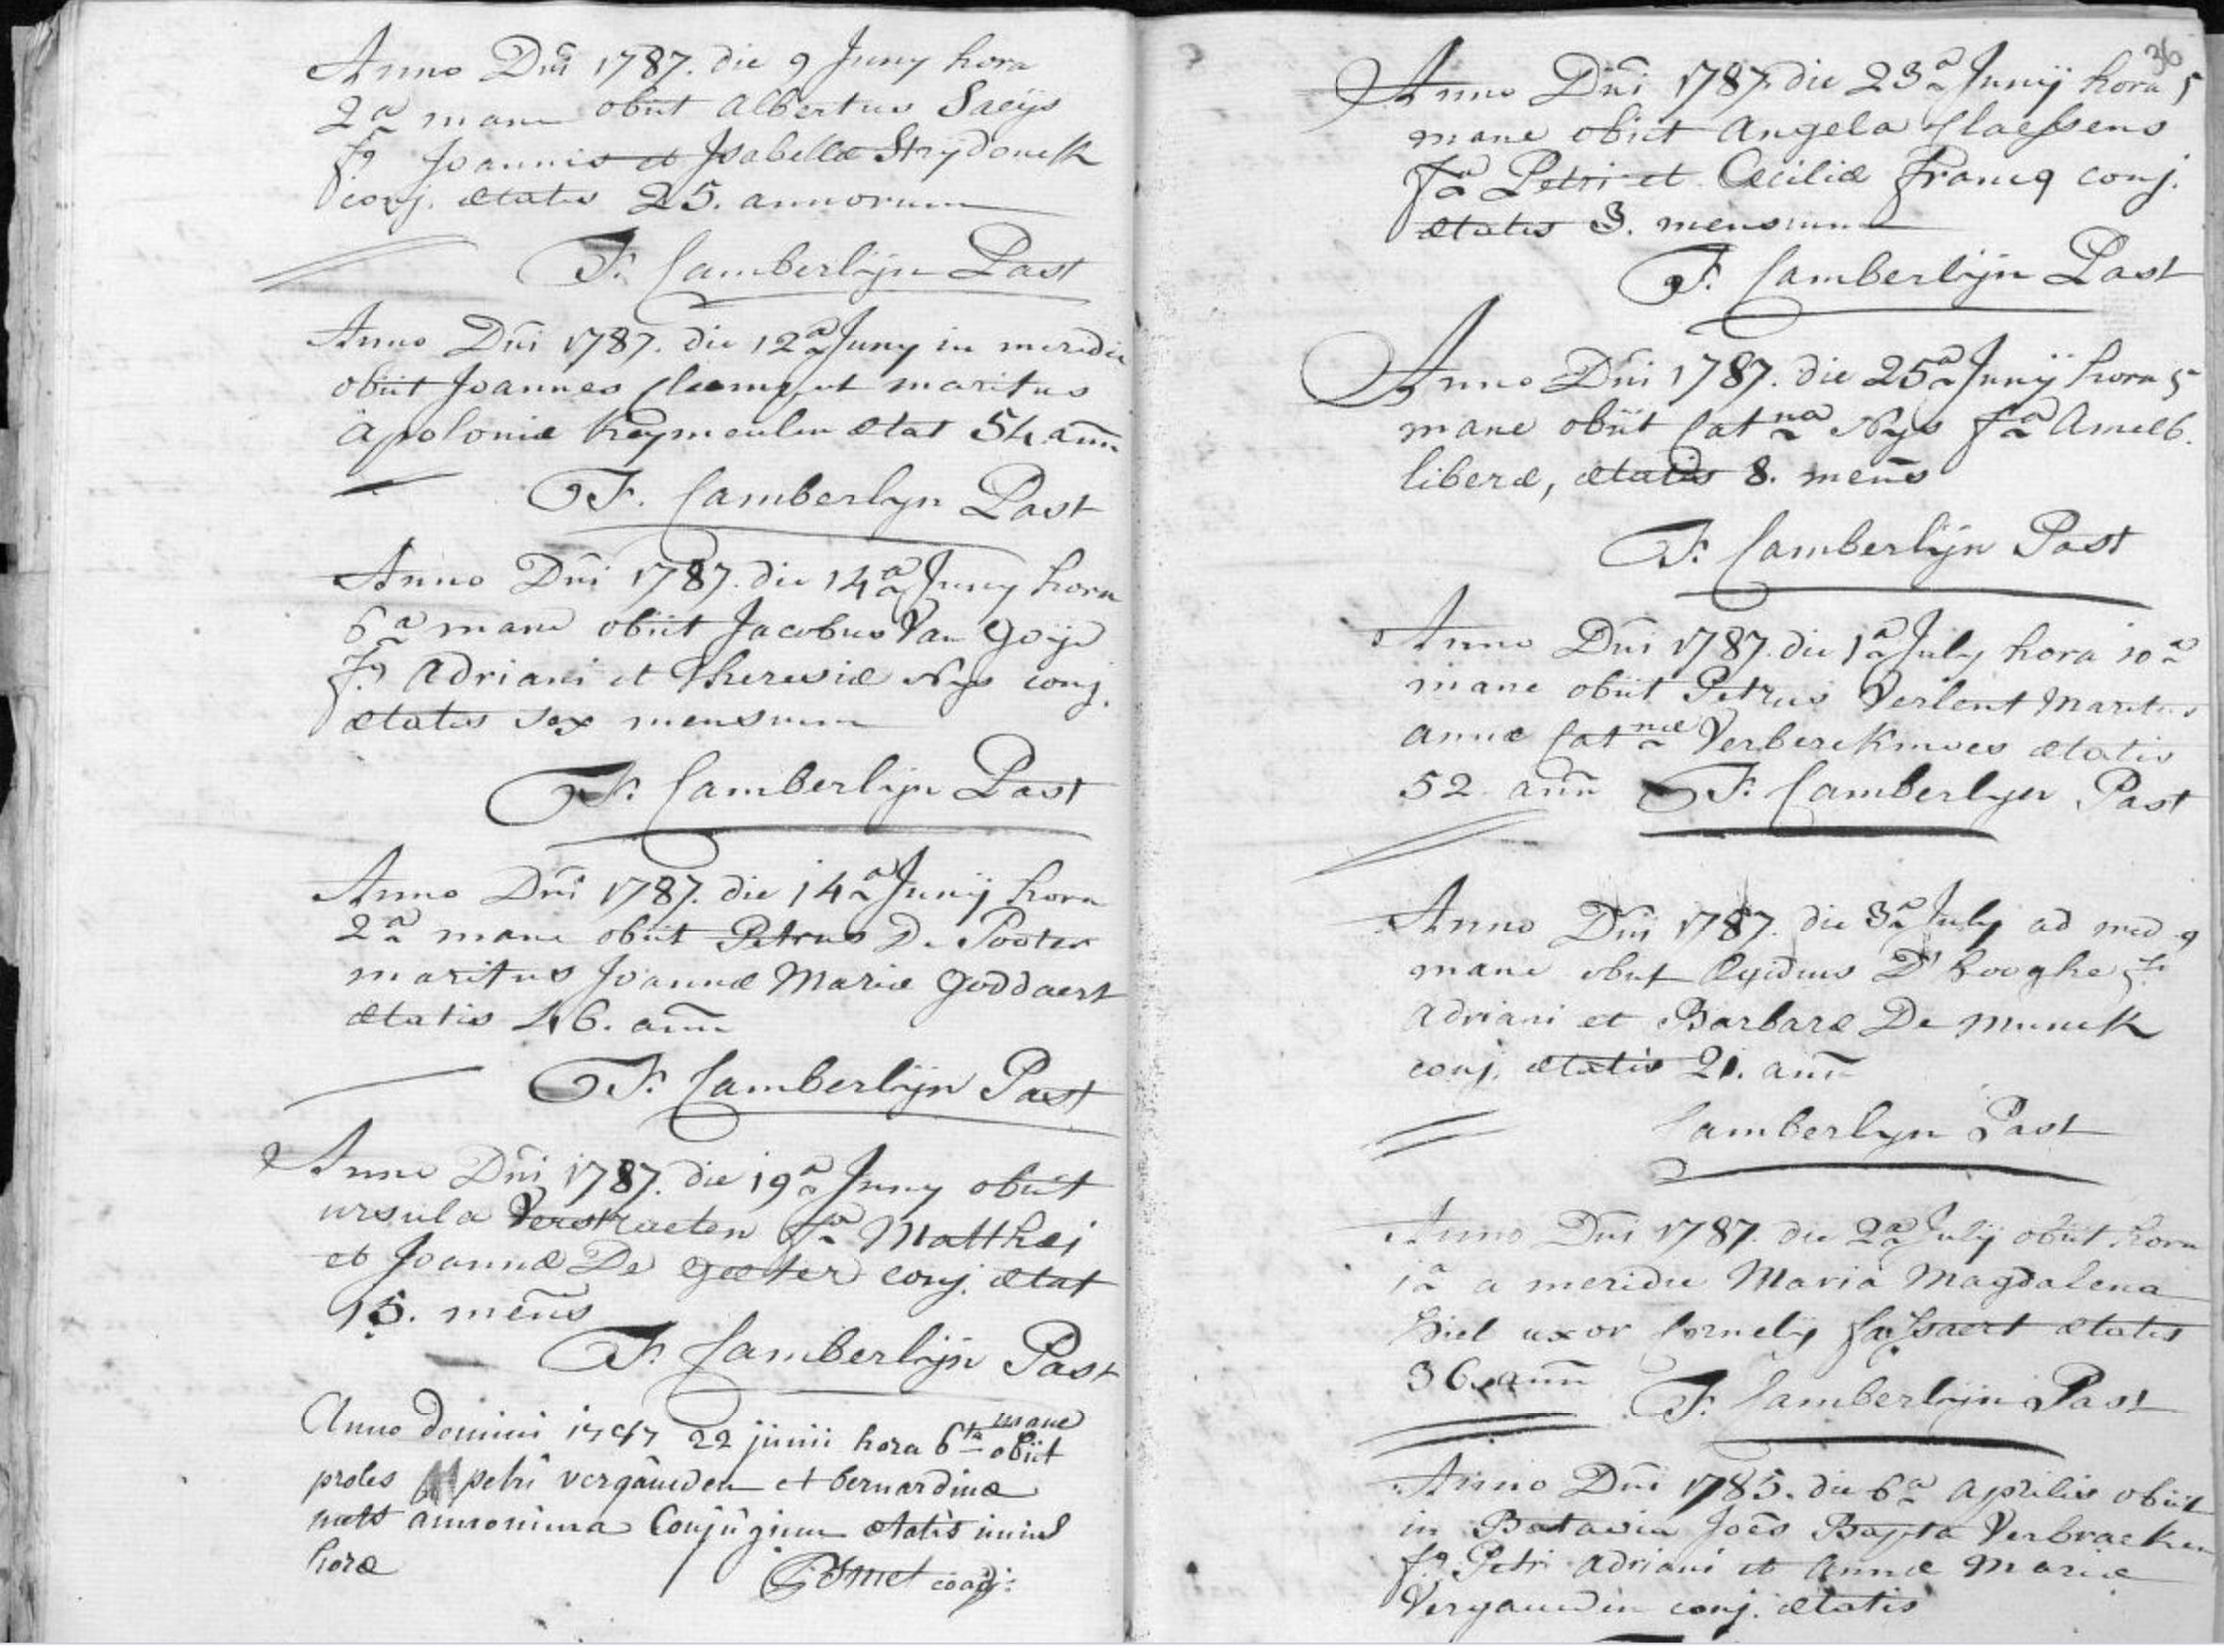 Anno Dni 1787. die 9 Juny hora
2a mane obiit Albertus Saeijs
fs Joannis et Isabellæ Strydonck
conj. ætatis 25. annorum
F. Camberlijn Past
Anno Dni 1787. die 12a Juny in meridie
obiit Joannes maritus
Apoloniæ Keymeulen ætat 54 ann
F. Camberlyn Past
Anno Dni 1787. die 14a Juny hora
6a mane obiit Jacobus Van Goije
fs Adriani et Theresiæ Nys conj.
ætatis sex mensium
F. Camberlijn Past
Anno Dni 1787. die 14a Junij hora
2a mane obiit Petrus De Pooter
maritus Joannæ Mariæ Goddaert
ætatis 46. ann
F. Camberlijn Past
Anno Dni 1787. die 19a Juny obiit
ursula Verstraeten fa Matthæi
et Joannæ De Geeter conj. ætat
15. mens
F. Camberlijn Past
Anno domini 1787 22 junii hora 6ta mane obiit
proles petri vergauwden et bernardinæ
annonima Conjugum ætatis unius
horæ
Smet coadj:
36
Anno Dni 1787. die 23a Junij hora 5
mane obiit Angela Claessens
fa Petri et Cæciliæ Francq conj.
ætatis 3. mensium
F. Camberlijn Past
Anno Dni 1787. die 25a Junij hora 5a
mane obiit Catna Nys fa Amelb.
liberæ, ætatis 8. mens
F. Camberlijn Past
Anno Dni 1787. die 1a July hora 10a
mane obiit Petrus Verlent Maritus
Annæ Catnæ Verberckmoes ætatis
52. ann F. Camberlyn Past
Anno Dni 1787. die 3a July ad med 9
mane obiit Egidius D'hooghe fs
Adriani et Barbaræ De Munck
conj. ætatis 21. ann
Camberlyn Past
Anno Dni 1787. die 2a July obiit hora
1a a meridie Maria Magdalena
Hiel uxor Cornelij ætatis
36. ann F. Camberlijn Past
Anno Dni 1785. die 6a Aprilis obiit
in Batavia Joes Bapta Verbraeken
fs Petri Adriani et Annæ Mariæ
Vergauwden conj. ætatis